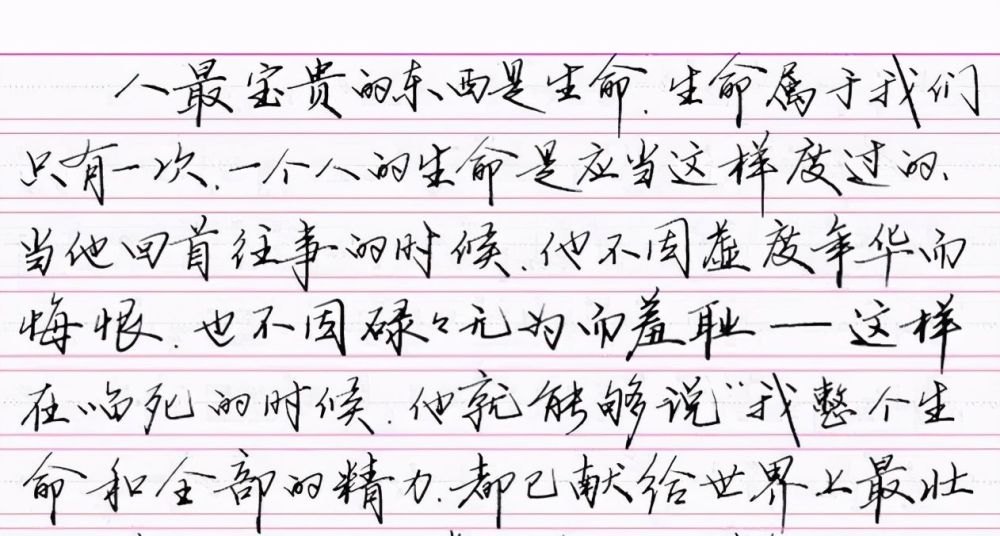 人最宝贵的东西是生命.生命属于我们
只有一次.一个人的生命是应当这样度过的.
当他回首往事的时候.他不因虚度年华而
悔恨.也不因碌々无为而羞耻—这样
在临死的时候.他就能够说"我整个生
命和全部的精力.都已献给世界上最壮